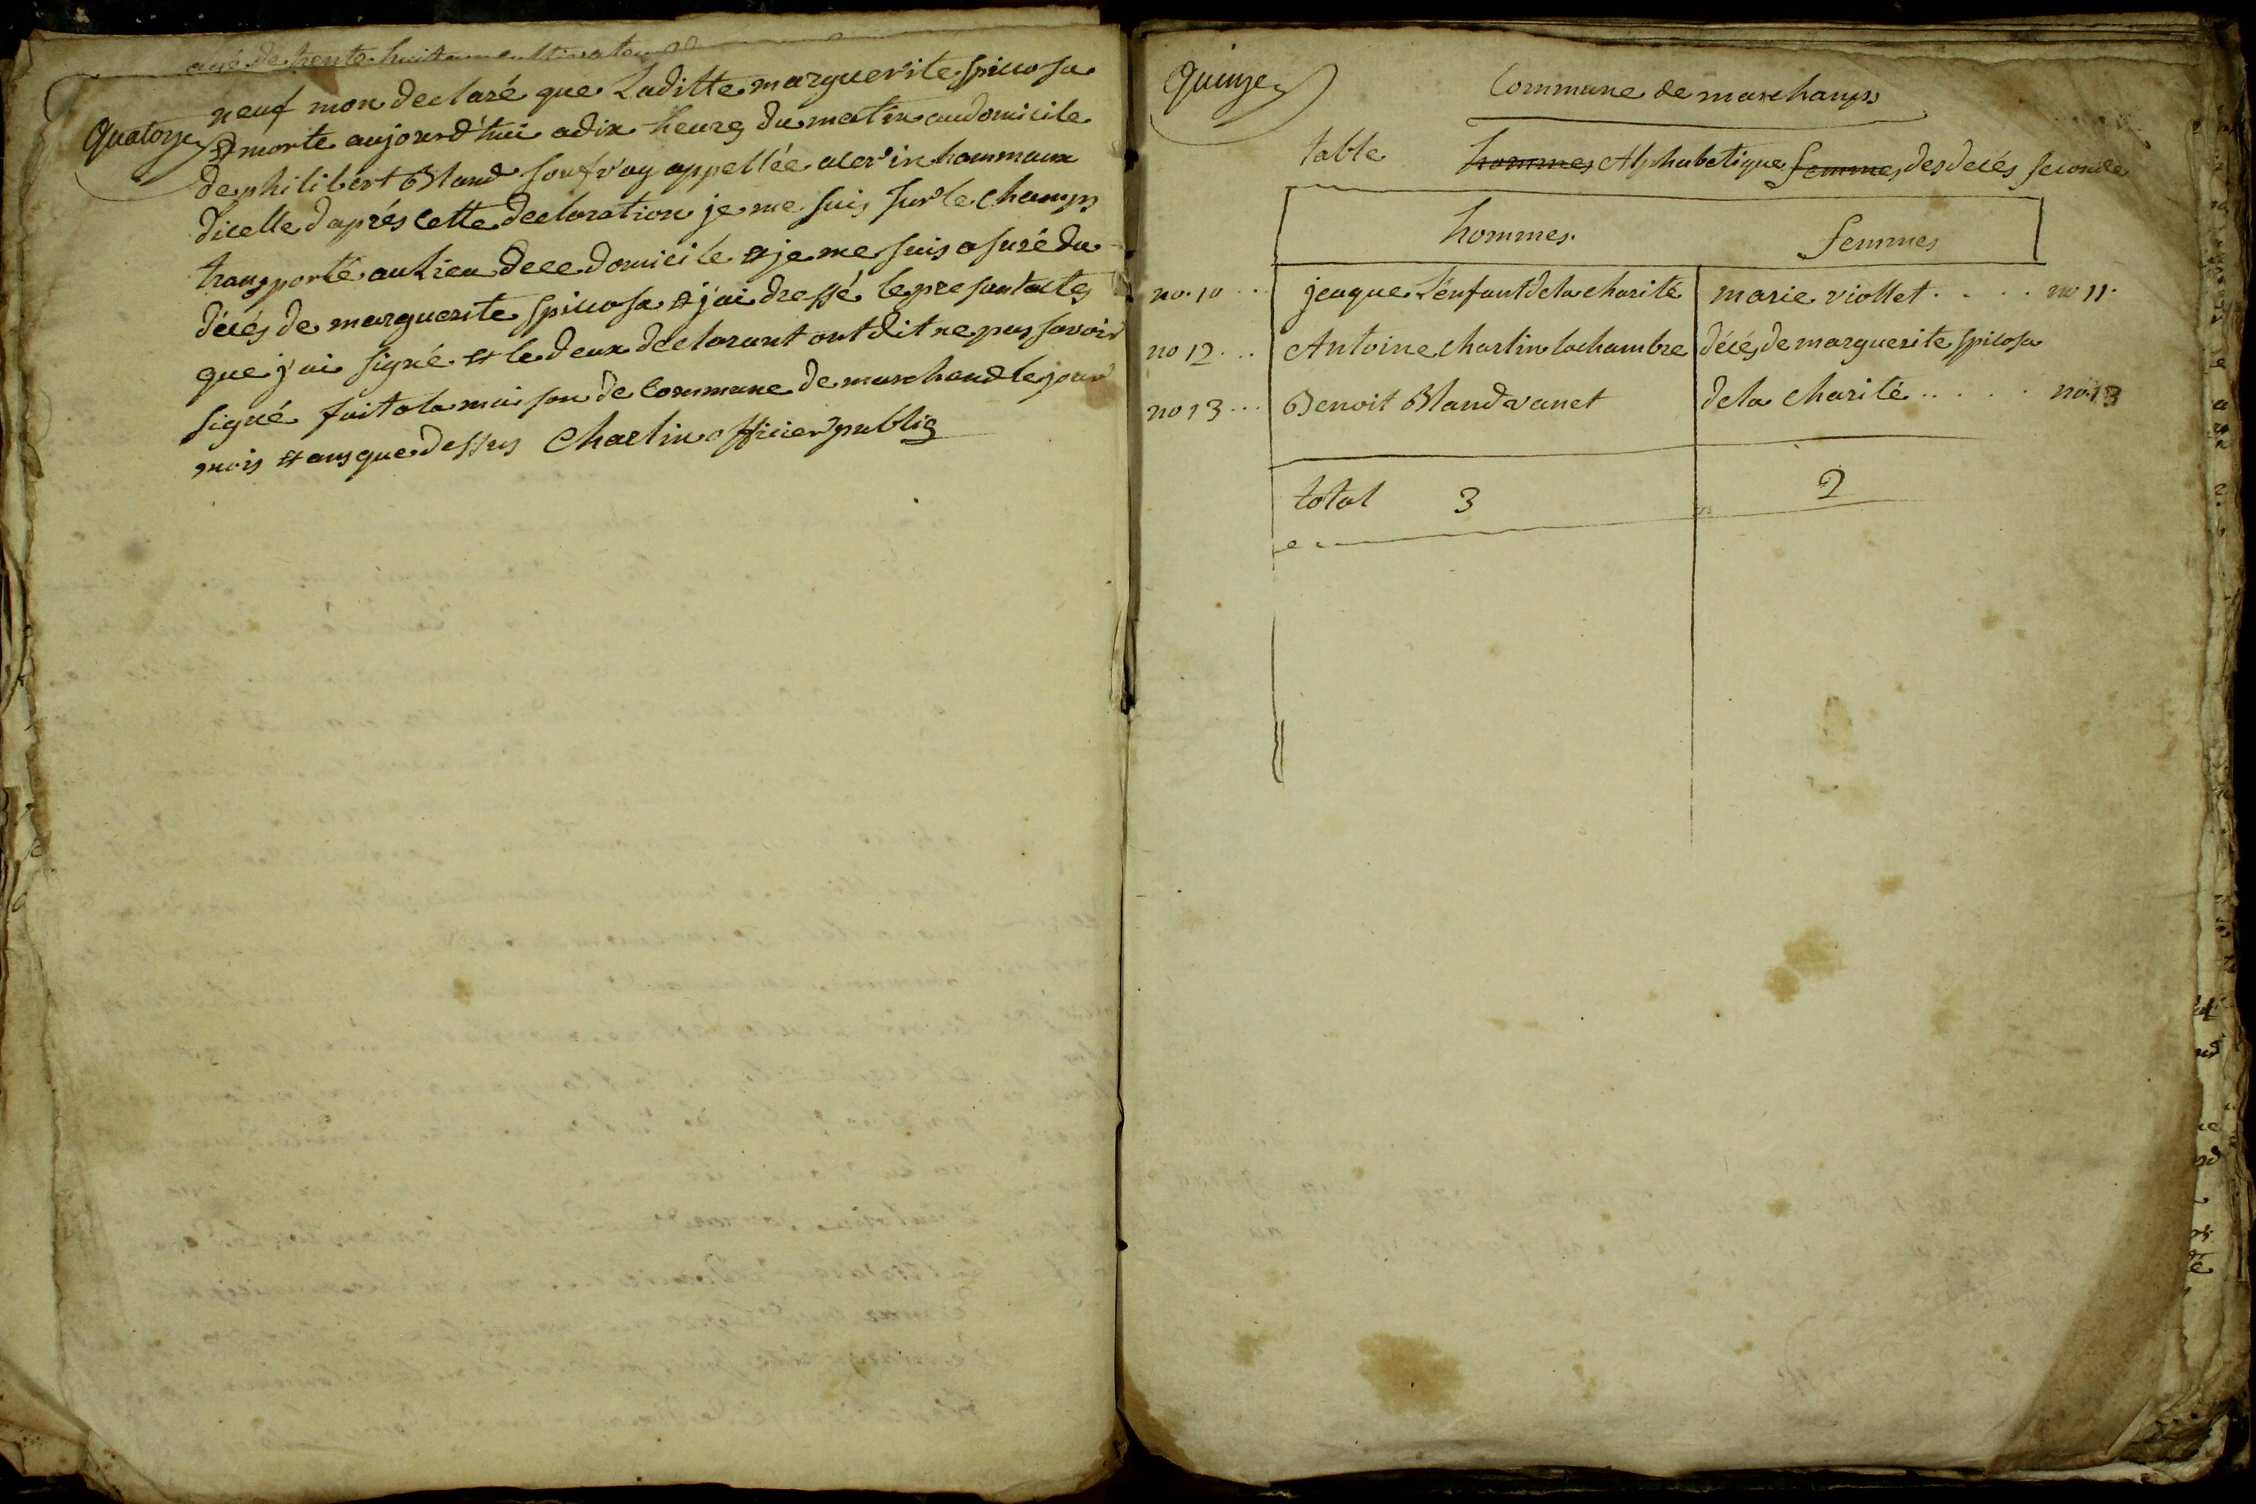 agé de trente huit ans cultivateur
quatorze
neuf mon declaré que Laditte marguerite spicosa
et morte aujourd'hui a dix heures du matin au domicile
de philibert Bland
dicelle d'aprés cette declaration je me suis sur le champs
transporté au Lieu de ce domicile et je me suis asuré du
décés de marguerite spicosa et j'ai dressé le presant acte
que j'ai signé et le deux declarant ont dit ne pas savoir
signé fait a la maison de Commune de marchand le jour
mois et ans que dessus Charlin officier publiq
quinze
Commune de marchamps
table hommes Alphabetique femmes des decés seconde
hommes. femmes
no. 10 ... jeaque Lénfant de la charité marie viollet . . . . . no 11.
no 12 ... Antoine charlin lachambre décés de marguerite spicosa
no 13 ... Benoit Bland vanet de la charité . . . . . no 13
total 3 2